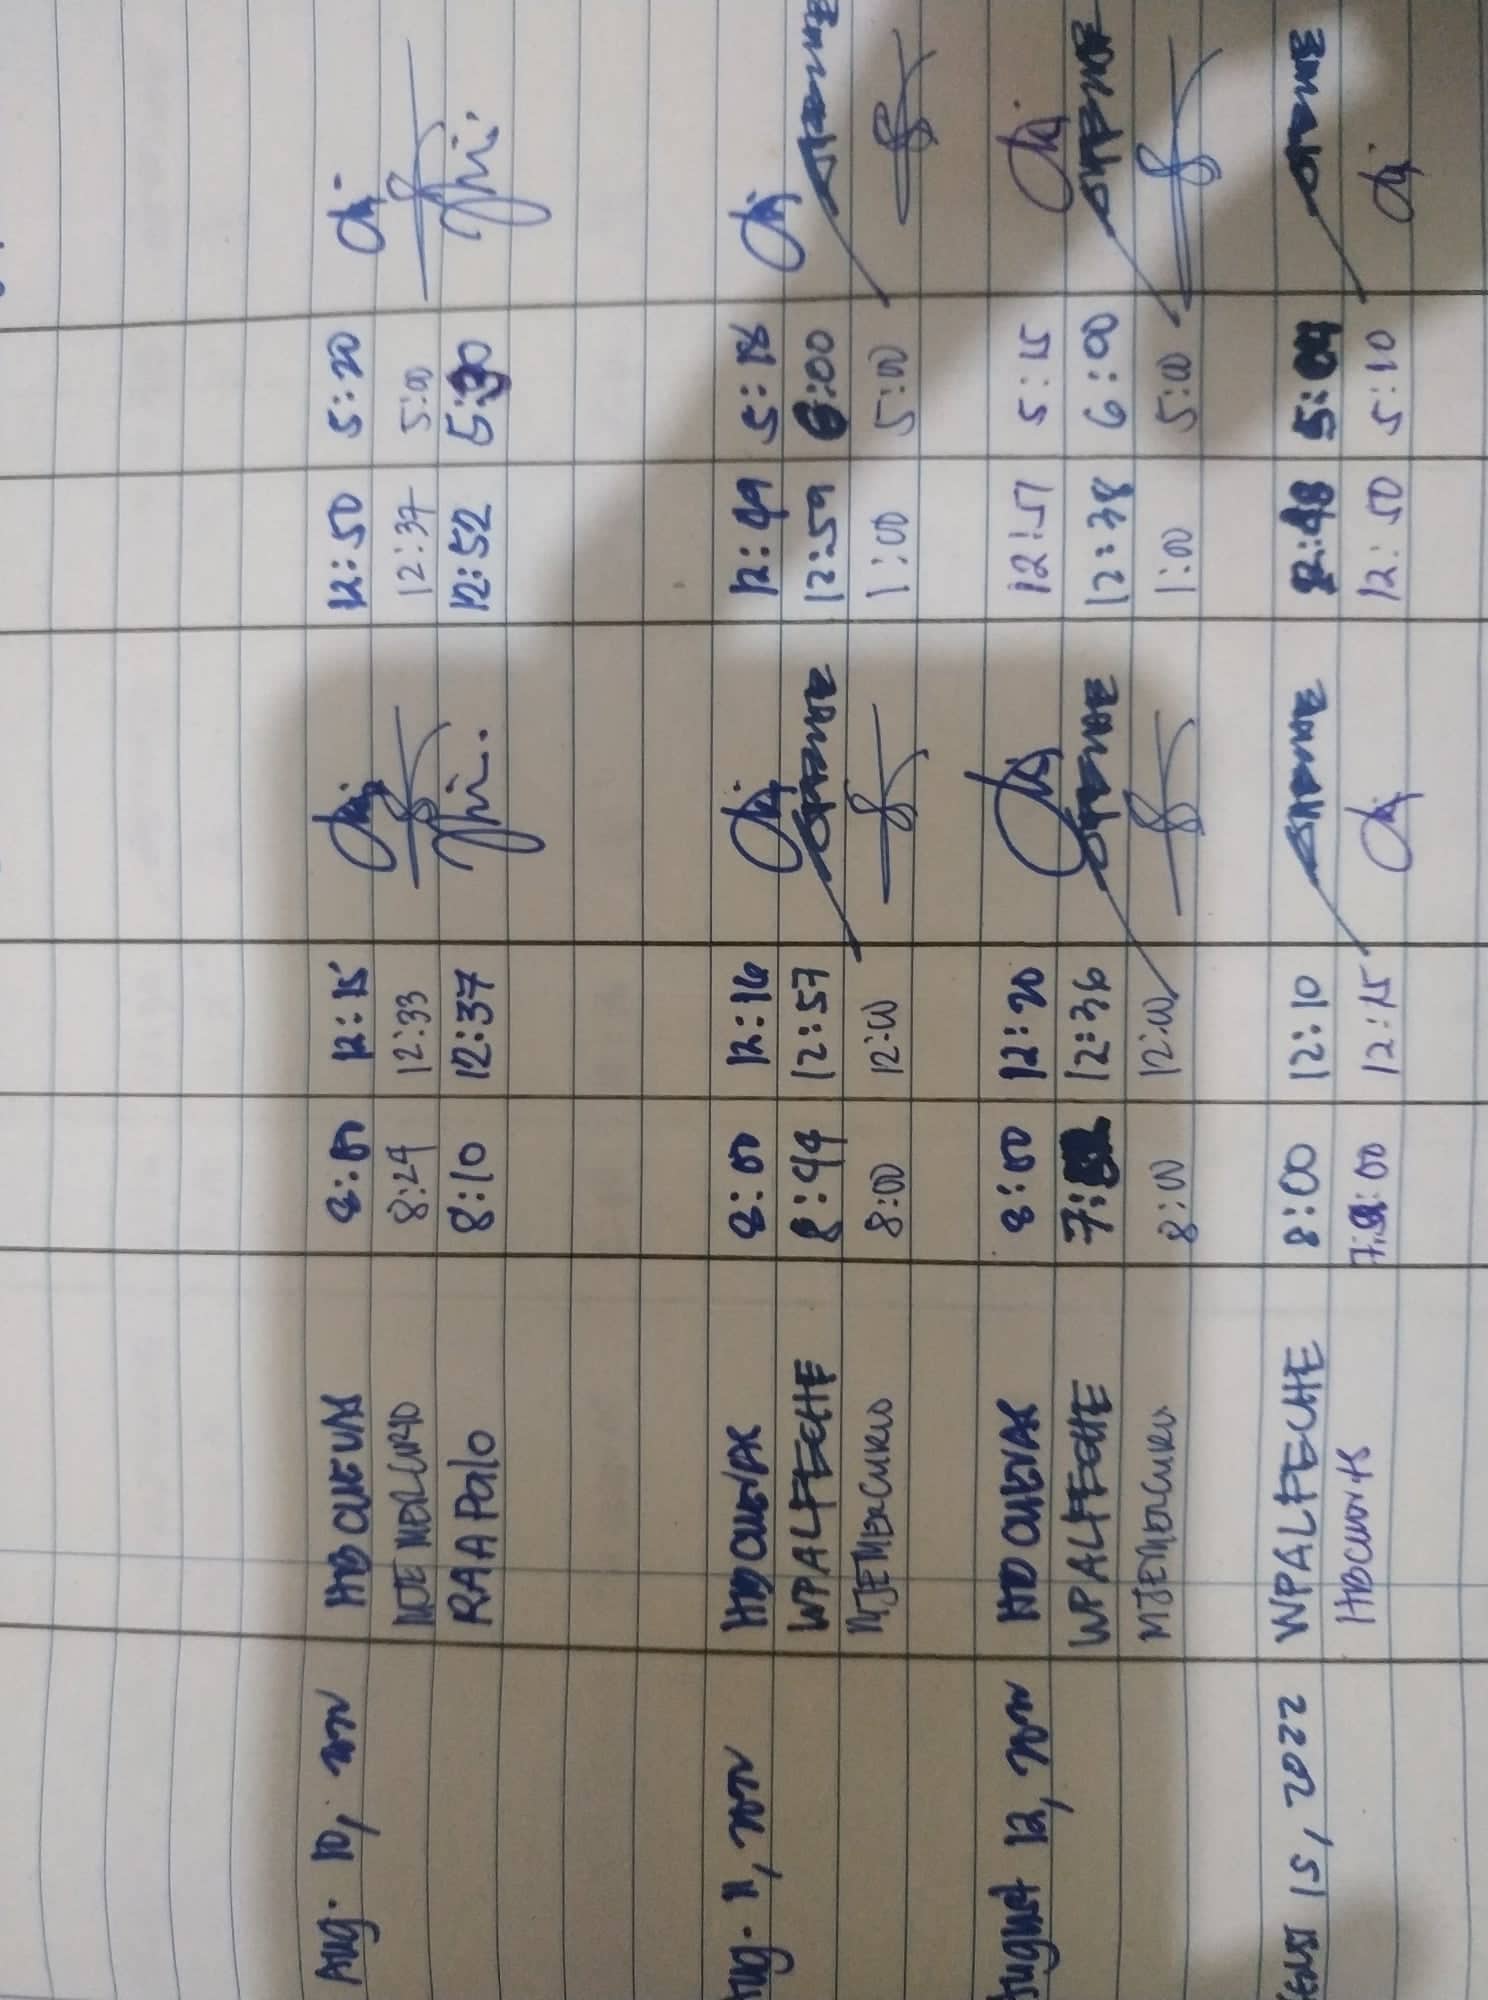 Aug. 10, 2022 HDCUEVAS 8:00 12:15 12:50 5:20
MJEMERCURIO 8:29 12:33 12:37 5:00
RAAPalo 8:10 12:37 12:52 5:30
Aug. 11, 2022 HDCUEVAS 8:00 12:16 12:49 5:18
WPALFECHE 8:49 12:57 12:59 6:00
MJEMERCURIO 8:00 12:00 1:00 5:00
August 12, 2022 HDCUEVAS 8:00 12:20 12:51 5:15
WPALFECHE 7: 12:36 12:38 6:00
MJEMERCURIO 8:00 12:00 1:00 5:00
15, 2022 WPALFECHE 8:00 12:10 12:48 5:04
HDCUEVAS 12:15 12:50 5:10